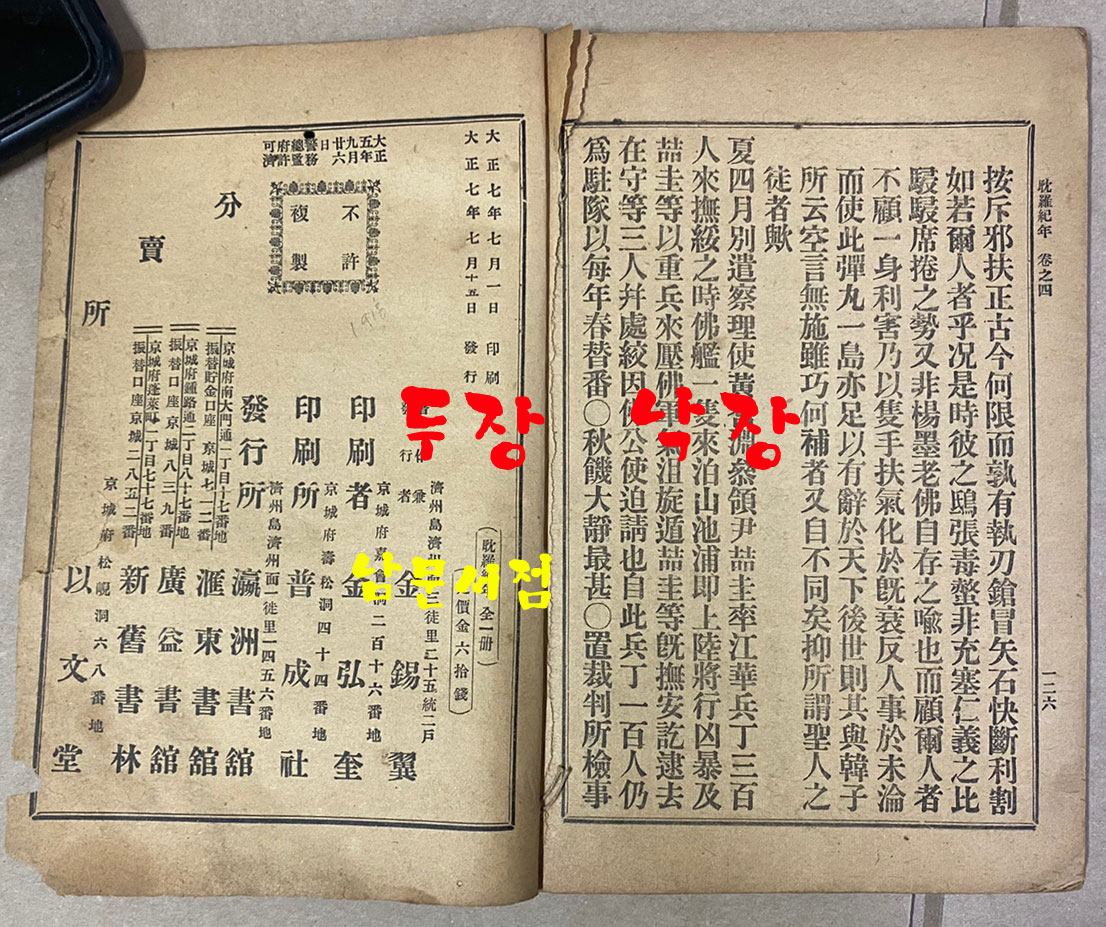 耽羅紀年 卷之四
一二六
按斥邪扶正古今何限而孰有執刃鎗冒矢石快斷利割
如若爾人者乎况是時彼之鴟張毒螫非充塞仁義之比
駸駸席捲之勢又非楊墨老佛自存之喩也而顧爾人者
不顧一身利害乃以隻手扶氣化於旣衰反人事於未淪
而使此彈丸一島亦足以有辭於天下後世則其與韓子
所云空言無施雖巧何補者又自不同矣抑所謂聖人之
徒者歟
夏四月別遣察理使黃 淵叅領尹喆圭率江華兵丁三百
人來撫綏之時佛艦一隻來泊山池浦即上陸將行凶暴及
喆圭等以重兵來壓佛軍 沮旋遁喆圭等旣撫安訖逮去
在守等三人幷處絞因佛公使迫請也自此兵丁一百人仍
爲駐隊以每年春替番○秋饑大靜最甚○置裁判所檢事
두장 낙장
남문서점
大正五年九月廿六日警務總監府許可濟
不許複製
1918
大正七年七月一日 印刷
大正七年七月十五日 發行
耽羅紀年 全一册 價金六拾錢
兼 發行者 濟州島濟州面三徒里二十五統二戶 金錫翼
印刷者 京城府嘉會洞二百十六番地 金弘奎
印刷所 京城府壽松洞四十四番地 普成社
發行所 濟州島濟州面一徒里一四五六番地 瀛洲書舘
分賣所
京城府南大門通一丁目十七番地 振替貯金口座 京城七一二番 滙東書舘
京城府鍾路通二丁目八十七番地 振替口座京城八三九番 廣益書舘
京城府蓬萊町一丁目七十七番地 振替口座京城二八五二番 新舊書林
京城府松峴洞六八番地 以文堂